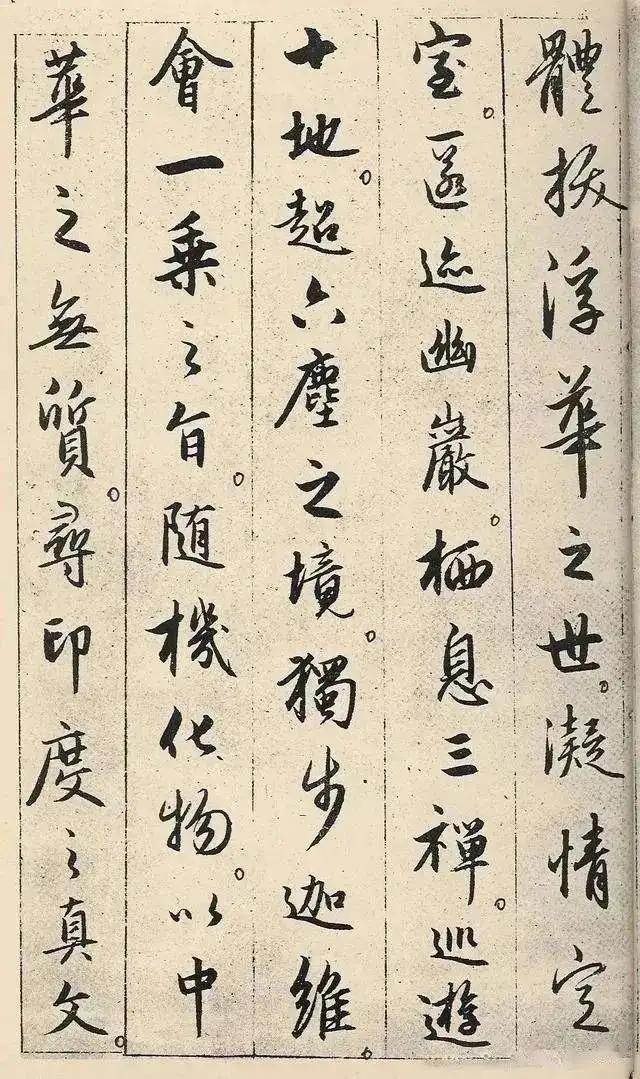 體拔浮華之世。凝情定
室。匿迹幽巖。栖息三禪。巡遊
十地。超六塵之境。獨步迦維。
會一乘之旨。随機化物。以中
華之無質。尋印度之真文。